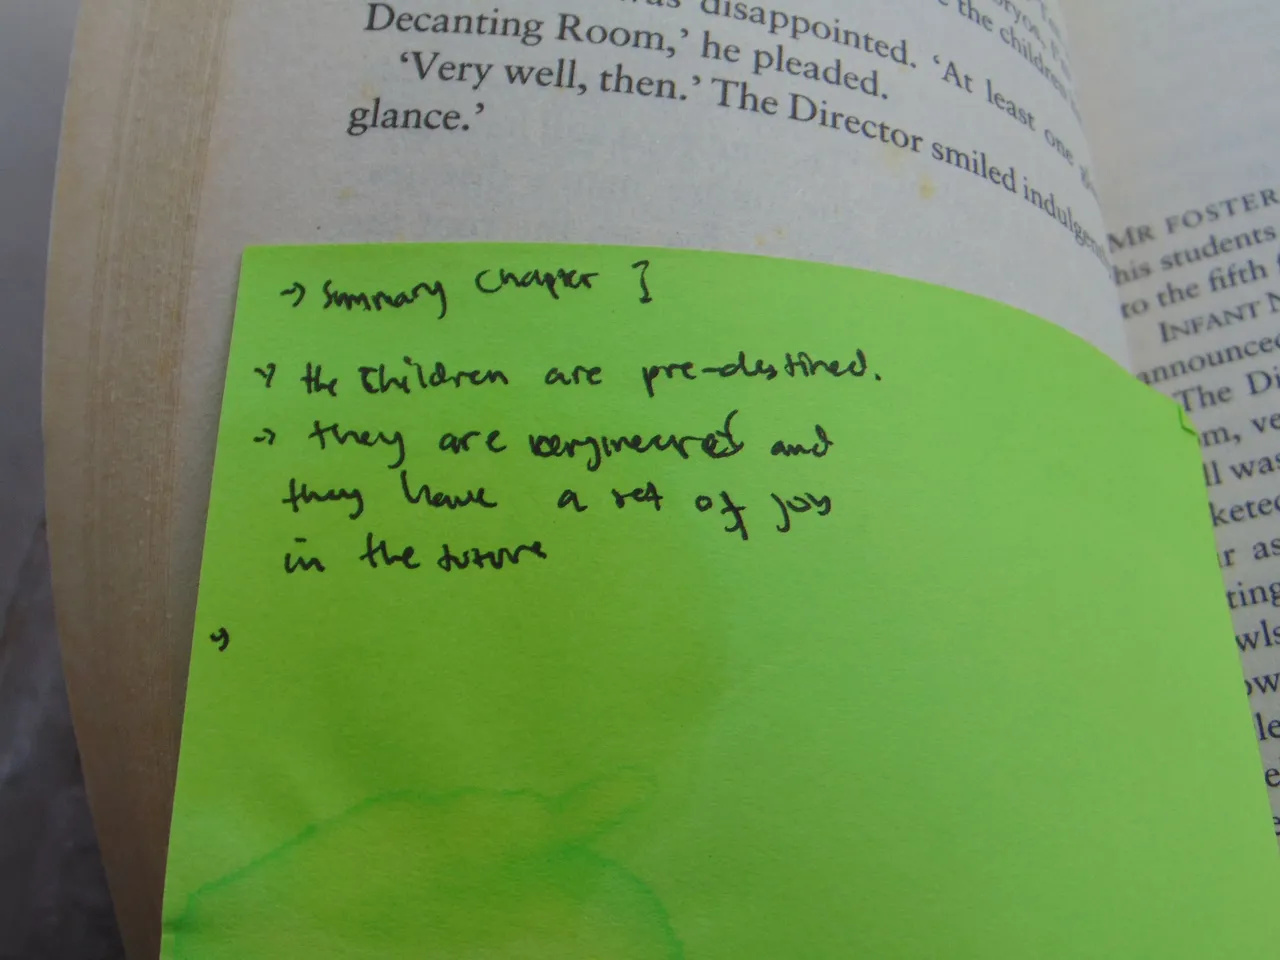 was disappointed. 'At least one
Decanting Room,' he pleaded.
'Very well, then.' The Director smiled indulgen
glance.'
the children
→ Summary Chapter 1
→ the children are pre-destined.
→ they are and
they have a set of job
in the future
→
MR FOSTER
his students
to the fifth
INFANT N
announced
The Di
m, ve
ll was
kete
r as
ting
wls
ow
le
e